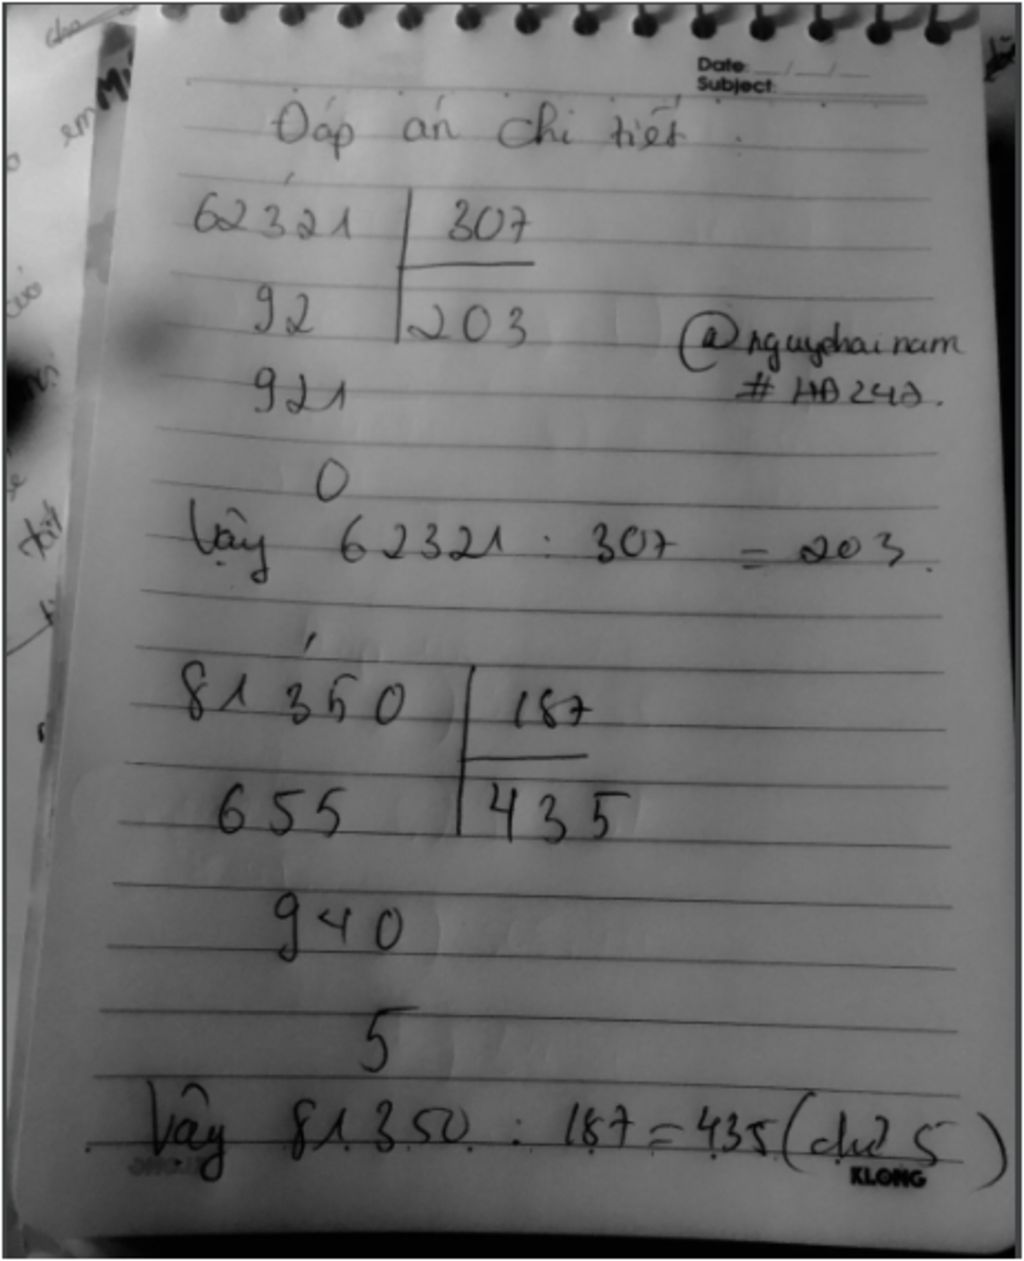 Date: __/__/__
Subject:
Đáp án chi tiết.
62321 307
92 203
@nguyphainam
921
# HĐ247.
0
Vậy 62321 : 307 = 203.
81350 187
655 435
940
5
Vậy 81350 : 187 = 435 (dư 5)
KLONG